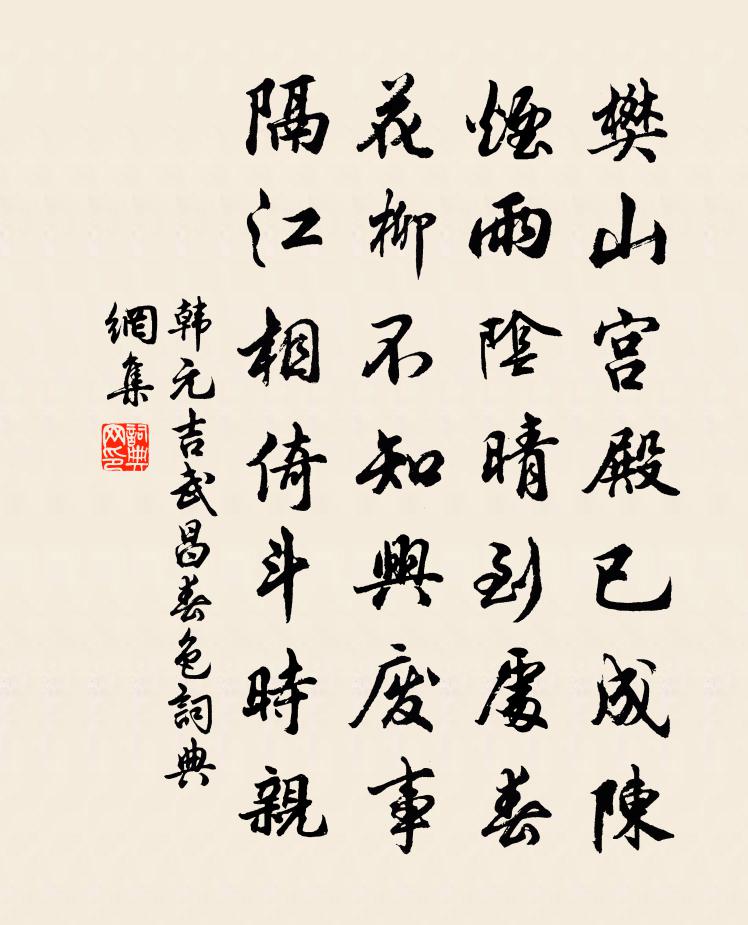 樊山宫殿已成陳
煙雨陰晴到處春
花柳不知興廢事
隔江相倚斗時親
韩元吉武昌春色詞典
網集
詞典
网印